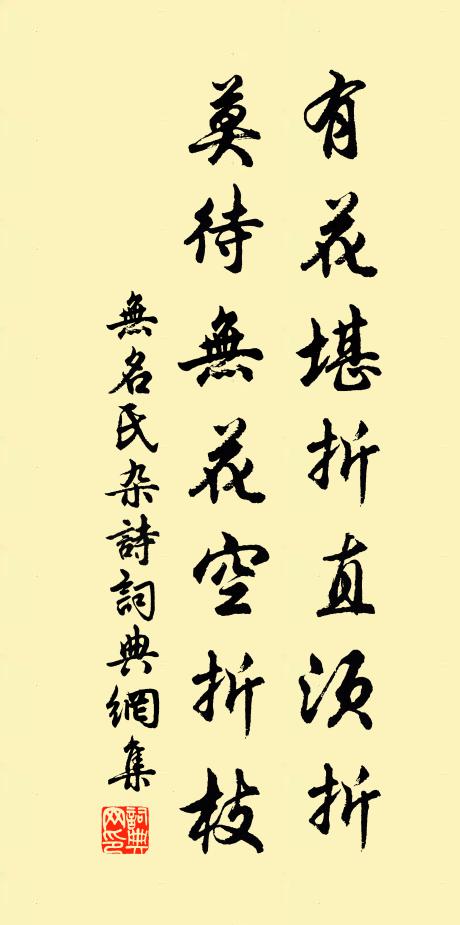 有花堪折直須折
莫待無花空折枝
無名氏杂詩詞典網集
詞典
网印